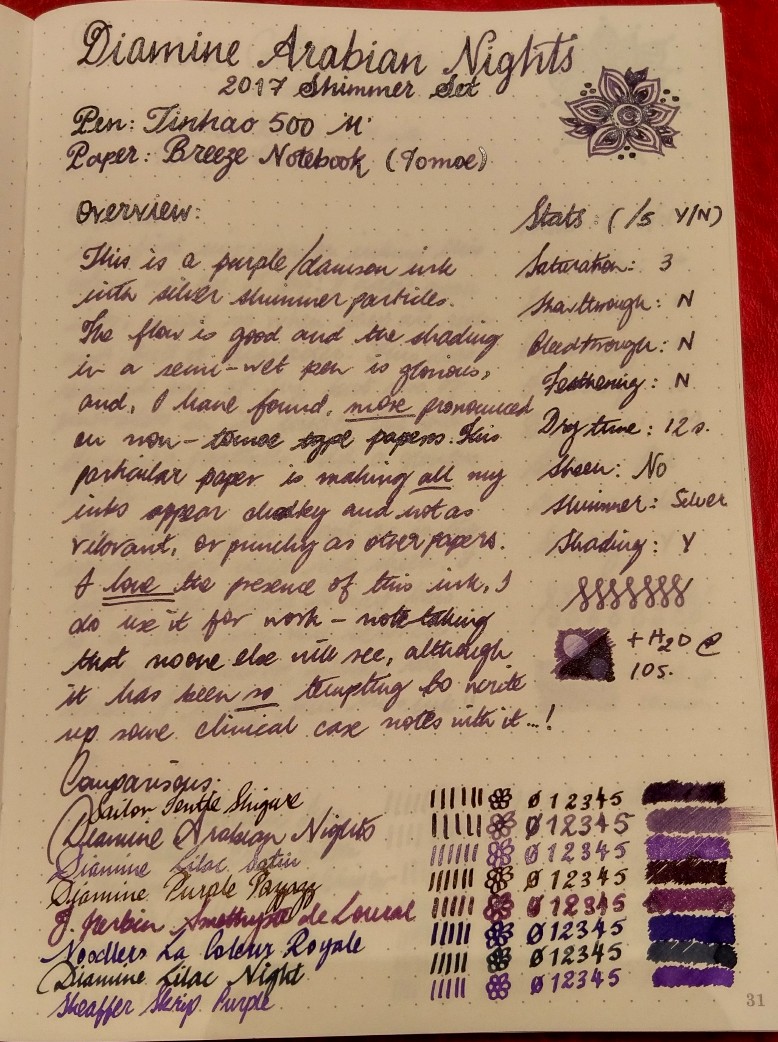 Diamine Arabian Nights
2017 Shimmer Set
Pen: Jinhao 500 M
Paper: Breeze Notebook (Tomoe)
Overview:
This is a purple/damson ink
with silver shimmer particles.
The flow is good and the shading
in a semi-wet pen is glorious,
and, I have found, more pronounced
on non-tomoe type papers. This
particular paper is making all my
inks appear chalky and not as
vibrant, or punchy as other papers.
I love the presence of this ink, I
do use it for work - note taking
that noone else will see, although
it has been so tempting to write
up some clinical case notes with it...!
Stats: (/5 Y/N)
Saturation: 3
Showthrough: N
Bleedthrough: N
Feathering: N
Dry time: 12s.
Sheen: No
Shimmer: Silver
Shading: Y
+ H2O @
10s.
Comparisons:
Sailor Jentle Shigure Ø 1 2 3 4 5
Diamine Arabian Nights Ø 1 2 3 4 5
Diamine Lilac Satin Ø 1 2 3 4 5
Diamine Purple Pazzazz Ø 1 2 3 4 5
J. Herbin Amethyste de Loural Ø 1 2 3 4 5
Noodlers La Coleur Royale Ø 1 2 3 4 5
Diamine Lilac Night Ø 1 2 3 4 5
Sheaffer Skrip Purple Ø 1 2 3 4 5
31